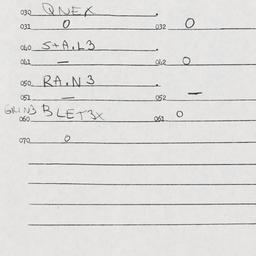 030 QNEX
031 0 032 0
040 S+A.L3
041 — 042 0
050 RA.N3
051 — 052 —
GRIN3 BLET3X
060 061 0
070 0